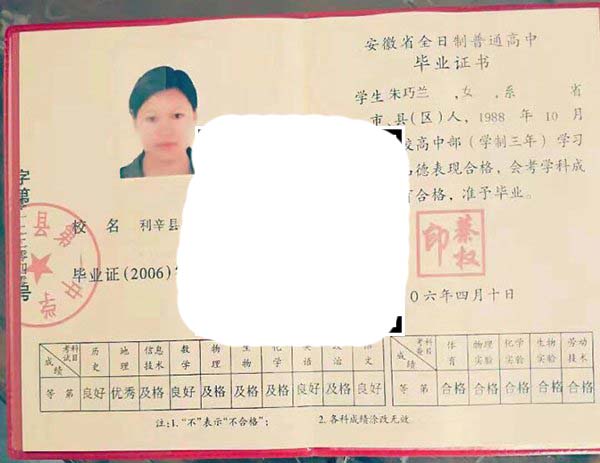 安徽省全日制普通高中
毕业证书
学生 朱巧兰 ,女 ,系 省
市、县(区)人, 1988 年 10 月
校高中部(学制三年)学习
德表现合格,会考学科成
合格,准予毕业。
校 名 利辛县
毕业证(2006)
县第
中学
蔡权印
〇六年四月十日
科目 考试 成绩 历史 地理 信息技术 数学 物理 生物 化学 英语 政治 语文
等第 良好 优秀 及格 良好 及格 及格 及格 良好 及格 良好
科目 考查 成绩 体育 物理实验 化学实验 生物实验 劳动技术
等第 合格 合格 合格 合格 合格
注:1.“不”表示“不合格”; 2.各科成绩涂改无效。